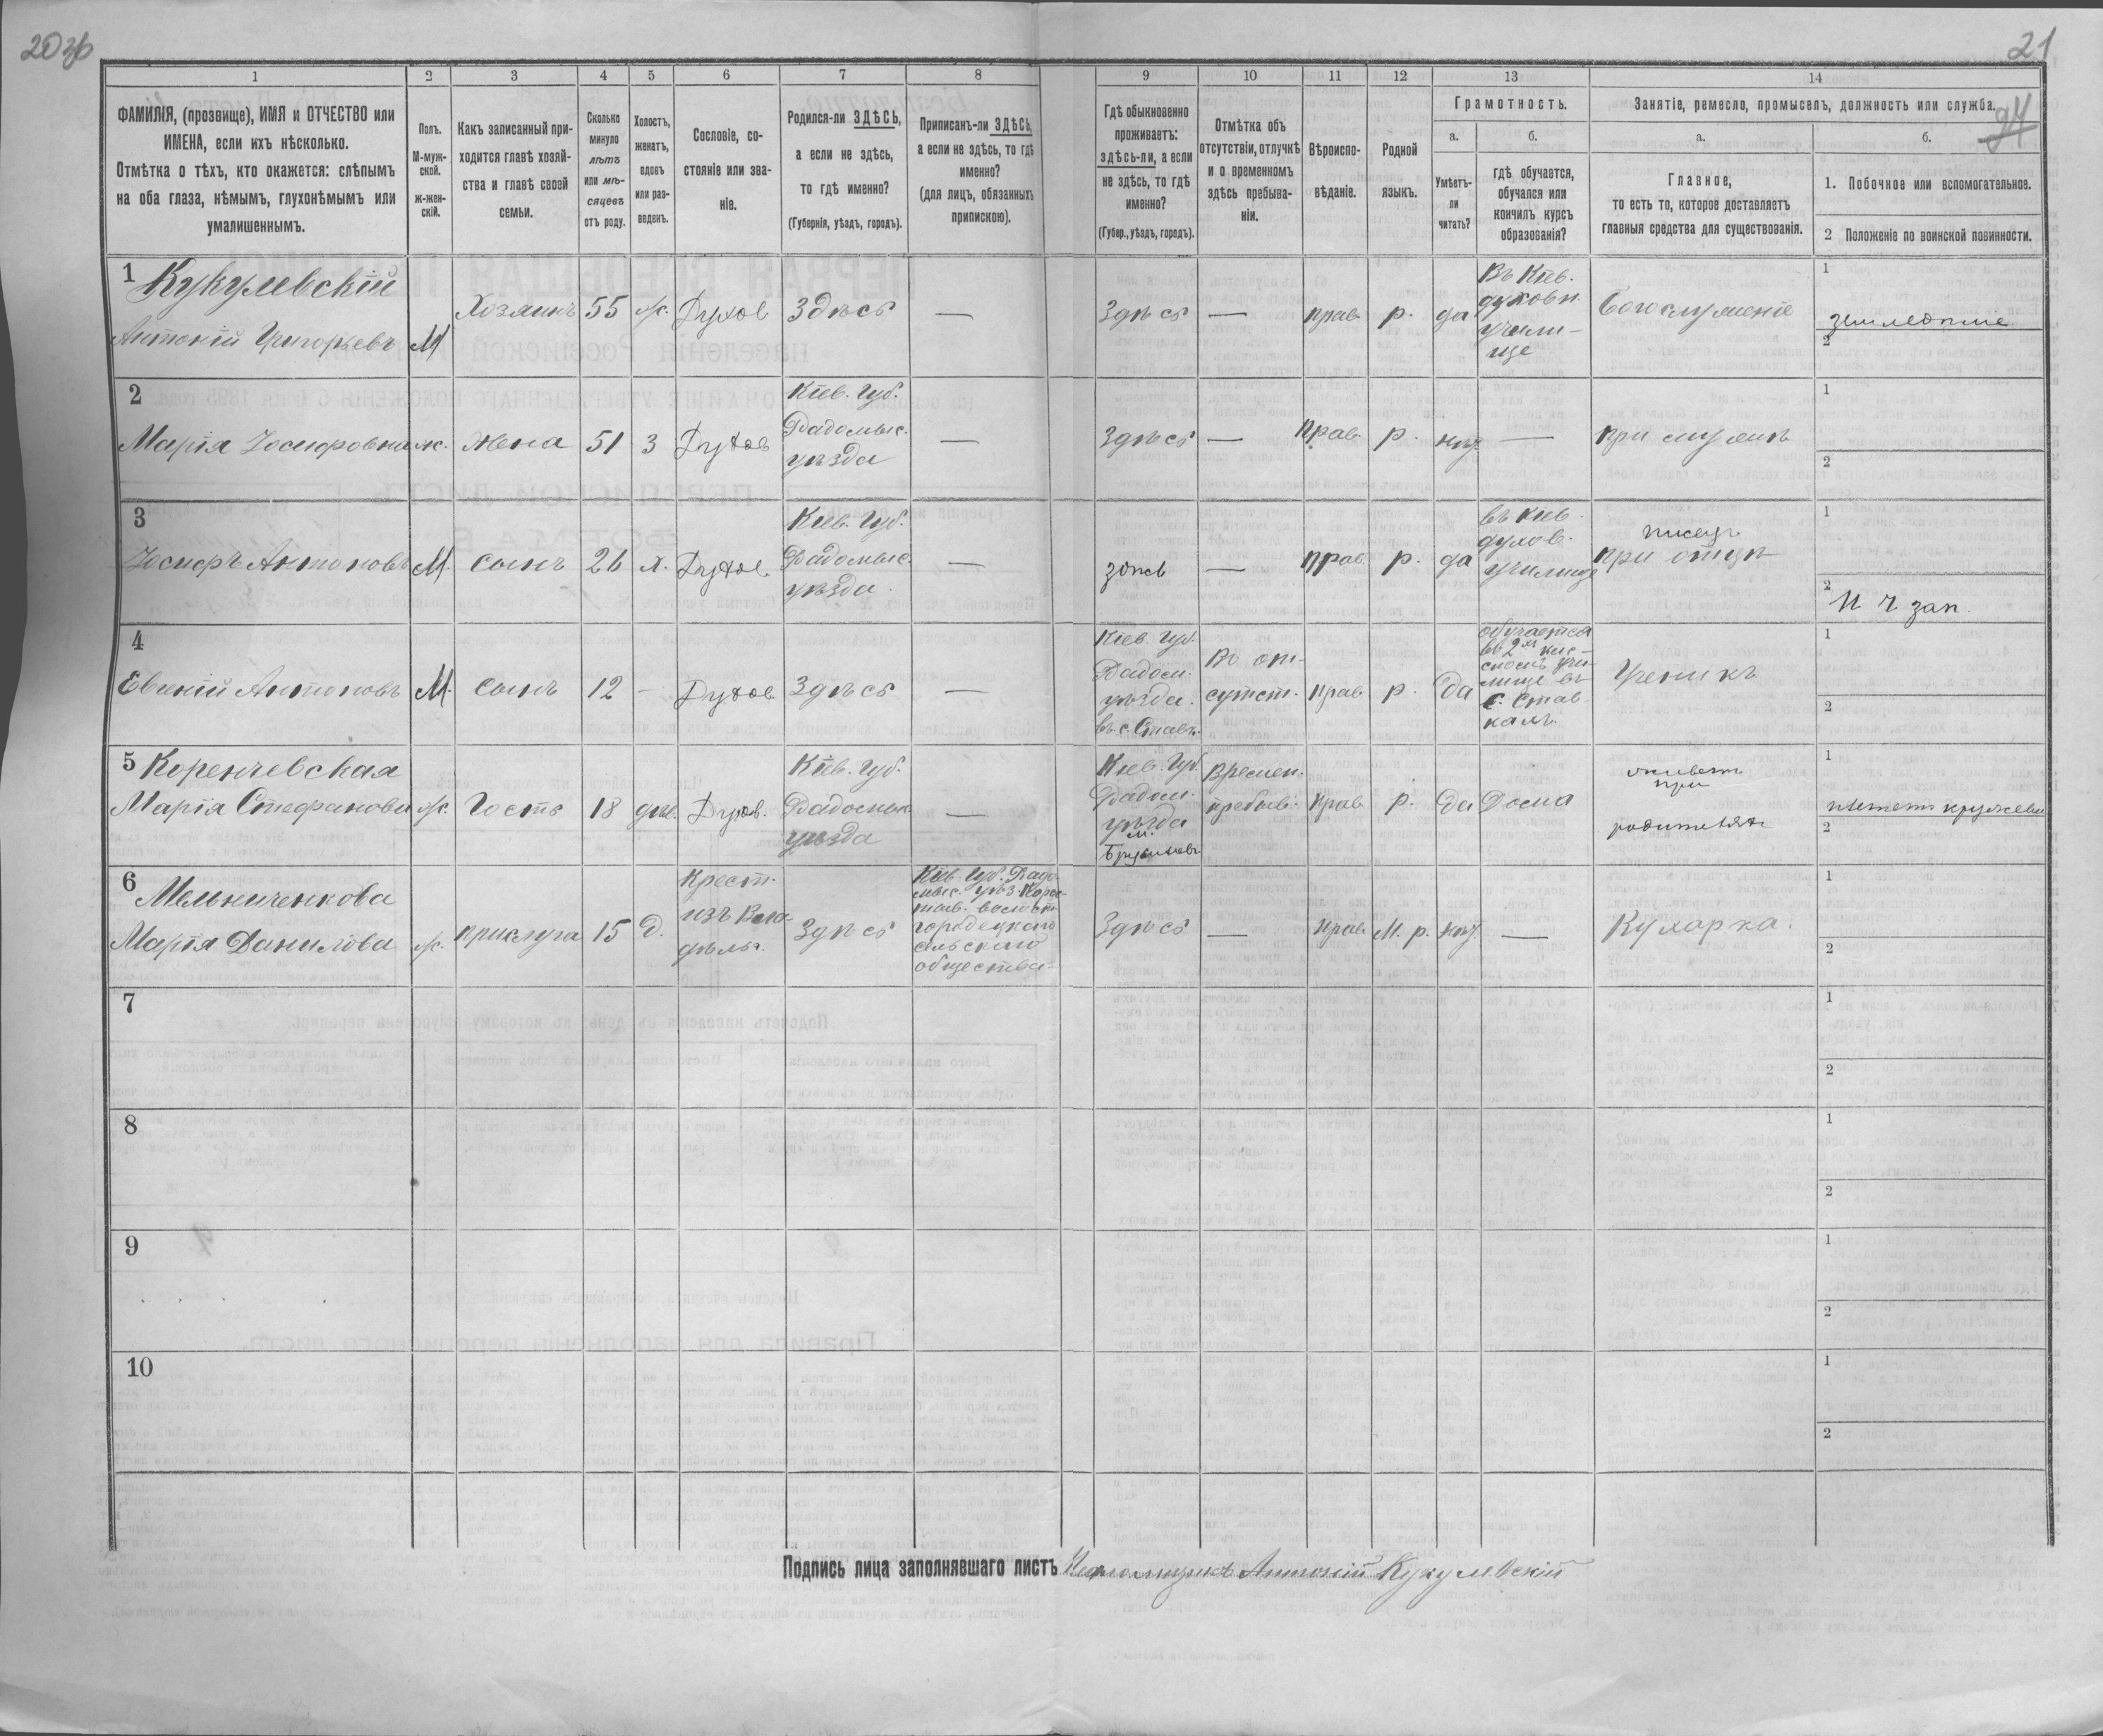 20 зв
21
1
2
3
4
5
6
7
8
9
10
11
12
13
14
ФАМИЛІЯ, (прозвище), ИМЯ и ОТЧЕСТВО или
ИМЕНА, если ихъ нѣсколько.
Отмѣтка о тѣхъ, кто окажется: слѣпымъ
на оба глаза, нѣмымъ, глухонѣмымъ или
умалишеннымъ.
Полъ.
М-муж-
ской.
ж-жен-
скій.
Какъ записанный при-
ходится главѣ хозяй-
ства и главѣ своей
семьи.
Сколько
минуло
лѣтъ
или мѣ-
сяцевъ
отъ роду.
Холостъ,
женатъ,
вдовъ
или раз-
веденъ.
Сословіе, со-
стояніе или зва-
ніе.
Родился-ли ЗДѢСЬ,
а если не здѣсь,
то гдѣ именно?
(Губернія, уѣздъ, городъ).
Приписанъ-ли ЗДѢСЬ,
а если не здѣсь, то гдѣ
именно?
(для лицъ, обязанныхъ
припискою).
Гдѣ обыкновенно
проживаетъ:
здѣсь-ли, а если
не здѣсь, то гдѣ
именно?
(Губер., уѣздъ, городъ).
Отмѣтка объ
отсутствіи, отлучкѣ
и о временномъ
здѣсь пребыва-
ніи.
Вѣроиспо-
вѣданіе.
Родной
языкъ.
Грамотность.
а.
Умѣетъ-
ли
читать?
б.
гдѣ обучается,
обучался или
кончилъ курсъ
образованія?
Занятіе, ремесло, промыселъ, должность или служба.
а.
Главное,
то есть то, которое доставляетъ
главныя средства для существованія.
б.
1. Побочное или вспомогательное.
2 Положеніе по воинской повинности.
1 Кукулевскій
Антоній Григорьевъ
М
Хозяинъ
55
ж.
Духов
Здѣсь
—
Здѣсь
—
прав.
р.
да
Въ Кіев.
духовн.
учили-
ще
Богослуженіе
1
земледѣліе
2
2
Марія Іосифовна
ж.
жена
51
З
Духов
Кіев. Губ.
Радомыс.
уѣзда
—
Здѣсь
—
прав.
р.
нѣт.
—
при мужѣ
1
2
3
Іосифъ Антоновъ
М.
сынъ
26
х.
Духов.
Кіев. Губ.
Радомыс.
уѣзда.
—
здѣсь
—
прав.
р.
да
въ Кіев.
духов.
училище
писецъ
при отцѣ
1
2
И ч зап.
4
Евгеній Антоновъ
М.
сынъ
12
-
Духов
Здѣсь
—
Кіев Губ.
Радом.
уѣзда.
въ с. Ставк.
Во от-
сутст.
прав
р.
Да
обучается
въ 2хъ клас-
сномъ учи-
лище въ
с. Став-
кахъ.
Ученикъ
1
2
5 Коренчевская
Марія Стефанова
ж.
Гость
18
дѣв.
Духов.
Кіев. Губ.
Радомыс.
уѣзда
—
Кіев. Губ.
Радом.
уѣзда
м.
Брусиловъ
Времен.
пребыв.
прав.
р.
да
Дома
живетъ
при
родителях
1
плететъ кружева
2
6
Мельниченкова
Марія Данилова
ж.
прислуга
15
Д.
Крест.
изъ Вла
дѣльч.
Здѣсь
Кіев. Губ. Радо-
мыс. уѣз. Корос-
тыш. волост.
городецкаго
сельскаго
общества
Здѣсь
—
прав.
М. р.
нѣт.
—
Кухарка.
1
2
7
1
2
8
1
2
9
1
2
10
1
2
Подпись лица заполнявшаго листъ Псаломщикъ Антоній Кукулевскій